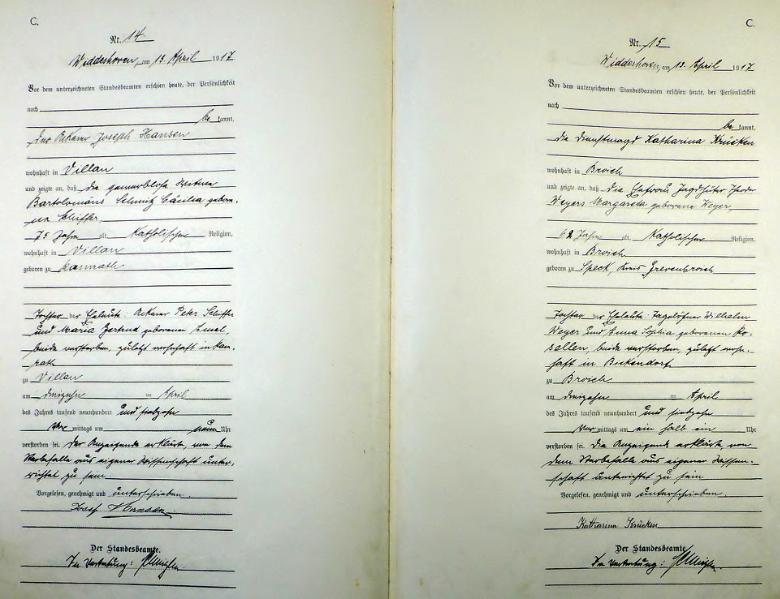 C.
Nr. 14
Widdeshoven, am 13. April 1917
Vor dem unterzeichneten Standesbeamten erschien heute, der Persönlichkeit
nach
be kannt,
der Ackerer Joseph Hansen
wohnhaft in Villau
und zeigte an, daß die gewerblose Rentner
Bartolomäus Schmitz Cäcilia gebore-
ne Schiffer
75 Jahre alt, Katholischer Religion,
wohnhaft in Villau
geboren zu
Tochter der Eheleute: Ackerer Peter Schiffer
und Maria Gertrud geborenen
beide verstorben, zuletzt wohnhaft in Kan-
rath
zu Villau
am dreizehn ten April
des Jahres tausend neunhundert und siebzehn
Vor mittags um neun Uhr
verstorben sei. Der Anzeigende erklärte, von dem
Sterbefalle aus eigener Wissenschaft unter-
richtet zu sein
Vorgelesen, genehmigt und unterschrieben.
Josef Hansen
Der Standesbeamte.
In Vertretung:
C.
Nr. 15
Widdeshoven, am 13. April 1917
Vor dem unterzeichneten Standesbeamten erschien heute, der Persönlichkeit
nach
be kannt,
die Dienstmagd Katharina Krücken
wohnhaft in Broich
und zeigte an, daß die Ehefrau Jagdhüter Theodor
Weyers Margareta geborene Weyer,
62 Jahre alt, Katholischer Religion,
wohnhaft in Broich
geboren zu Speck, Kreis Grevenbroich
Tochter der Eheleute: Tagelöhner Wilhelm
Weyer und Anna Sophia geborenen Ko-
zellen, beide verstorben, zuletzt wohn-
haft in Beckendorf
zu Broich
am dreizehn ten April
des Jahres tausend neunhundert und siebzehn
Vor mittags um ein halb ein Uhr
verstorben sei. Die Anzeigende erklärte, von
dem Sterbefalle aus eigener Wissen-
schaft unterrichtet zu sein
Vorgelesen, genehmigt und unterschrieben.
Katharina Krücken
Der Standesbeamte.
In Vertretung: